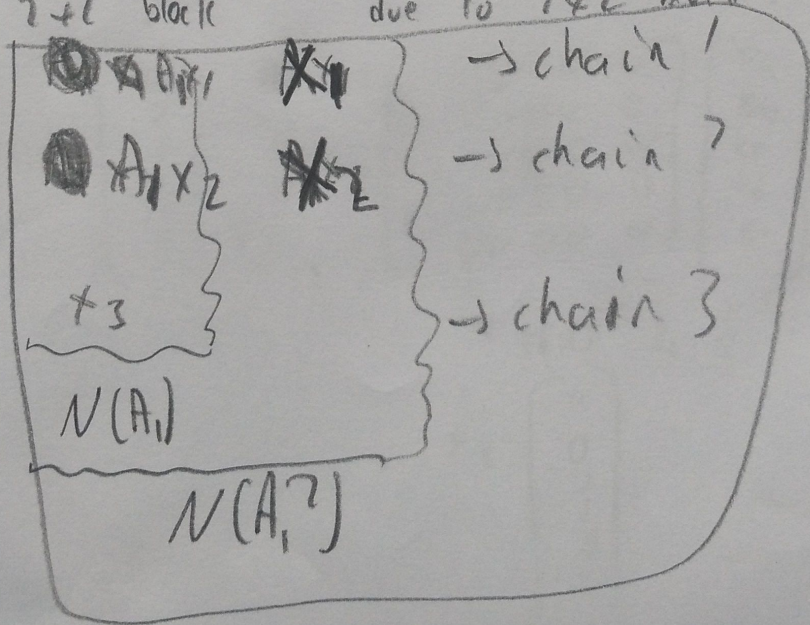 2+2 block due to 2x2
A₁x₁ x₁ → chain 1
A₁x₂ x₂ → chain 2
x₃ → chain 3
N(A₁)
N(A₁²)